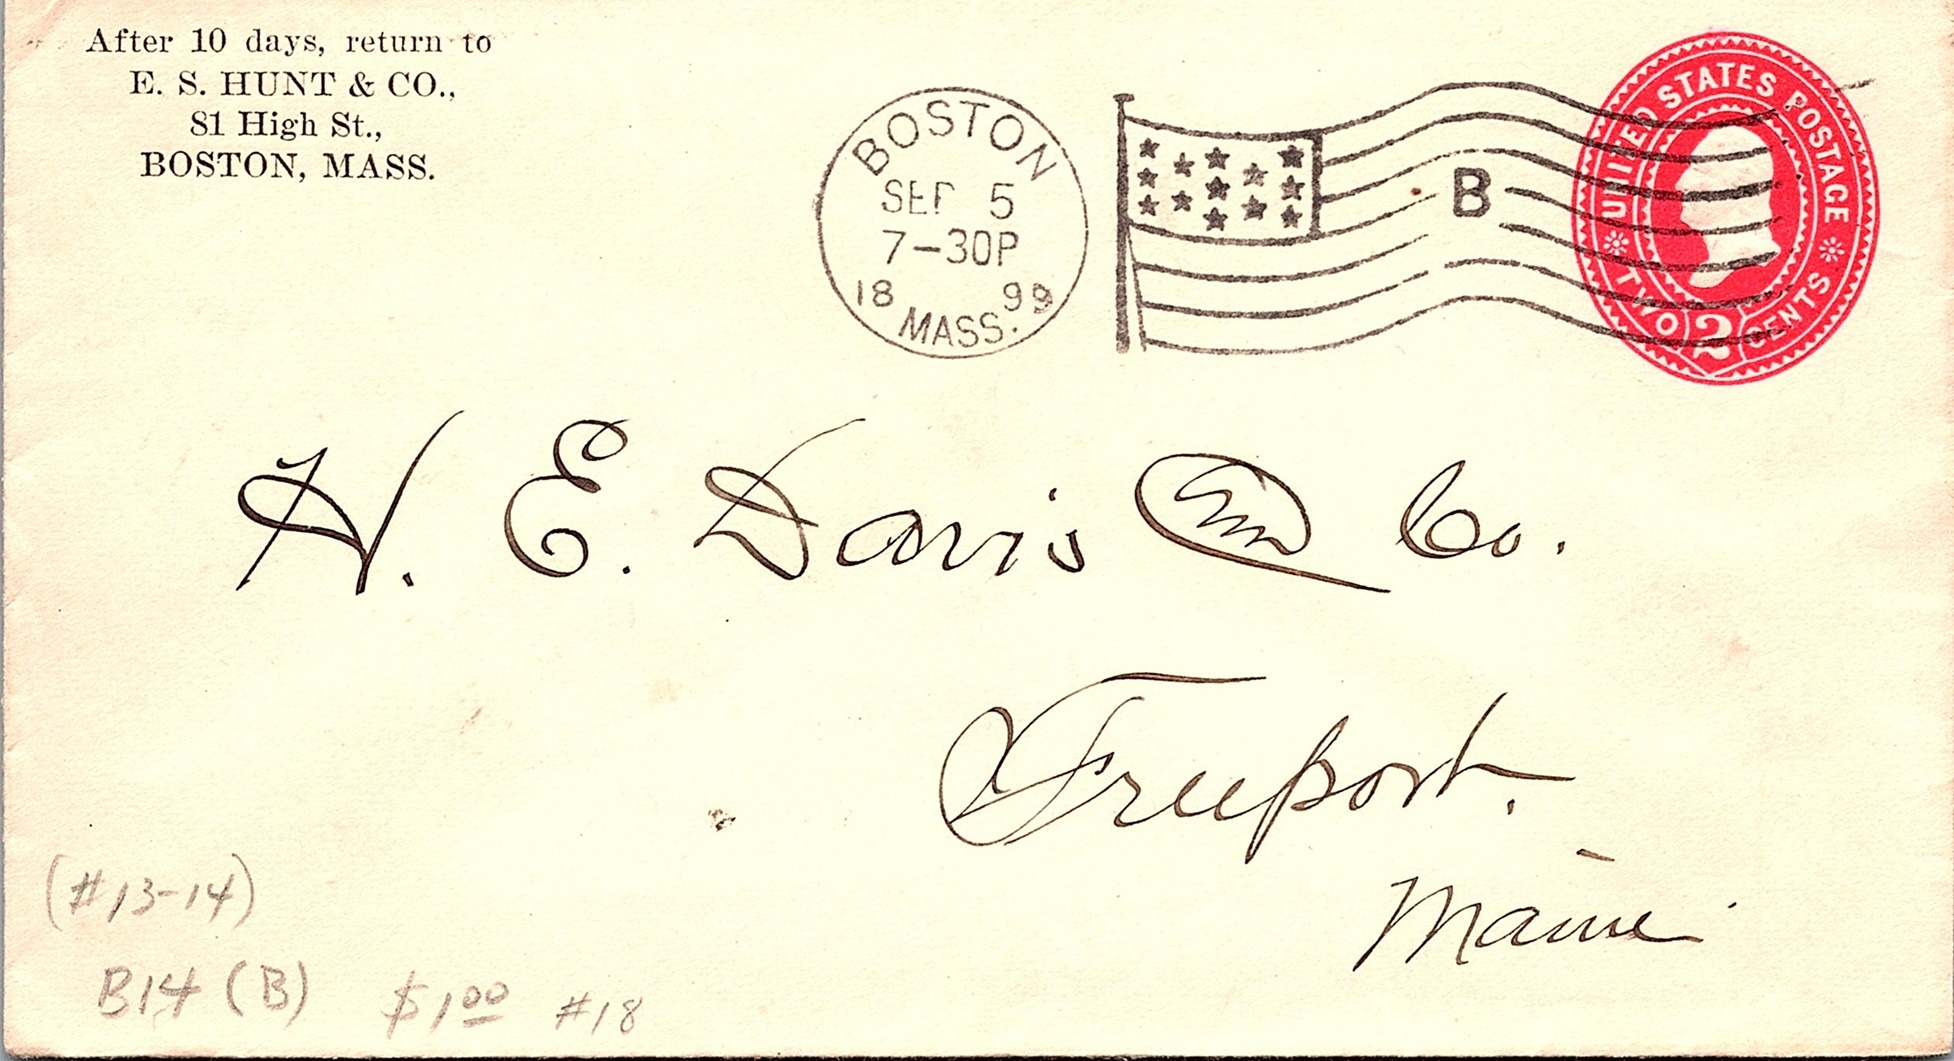 After 10 days, return to
E. S. HUNT & CO.,
81 High St.,
BOSTON, MASS.
BOSTON
SEP 5
7-30P
18 99
MASS.
B
UNITED STATES POSTAGE
TWO 2 CENTS
H. E. Davis & Co.
Freeport.
Maine
(#13-14)
B14 (B) $1.00 #18